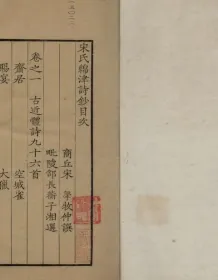 宋氏緜津詩鈔目次
商丘宋 犖牧仲譔
毗陵邵長蘅子湘選
卷之一 古近體詩九十六首
齋居 空城雀
宴 大獵